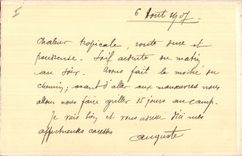 I
6 Août 1907.
Chaleur tropicale, route dure et
poudreuse. Soif ardente du matin
au soir. Avons fait la moitié du
chemin; avant d'aller aux manœuvres nous
allons nous faire griller 15 jours au camp.
Je vais bien, et vous envoie mes
affectueuses caresses
Auguste